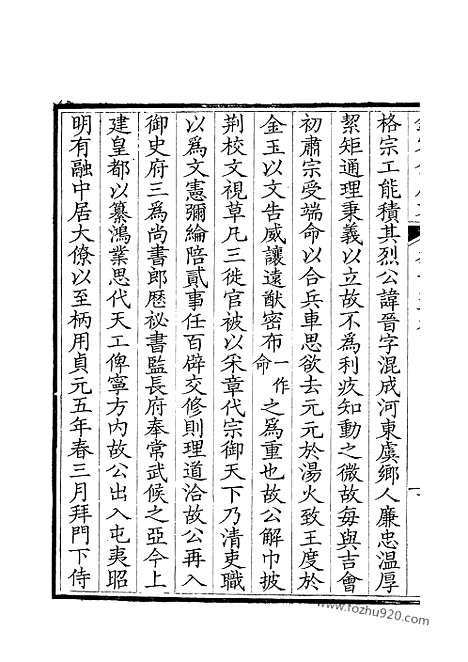 格宗工能積其烈公諱晉字混成河東虞鄉人廉忠温厚
絜矩通理秉義以立故不為利疚知動之微故每與吉會
初肅宗受端命以合兵車思欲去元元於湯火致王度於
金玉以文告威讓遠猷密布一作命之為重也故公解巾披
荆校文視草凡三徙官被以采章代宗御天下乃清吏職
以為文憲彌綸陪貳事任百辟交修則理道洽故公再入
御史府三為尚書郎歴祕書監長府奉常武候之亞今上
建皇都以纂鴻業思代天工俾寧方内故公出入屯夷昭
明有融中居大僚以至柄用貞元五年春三月拜門下侍
www.fozhu920.com